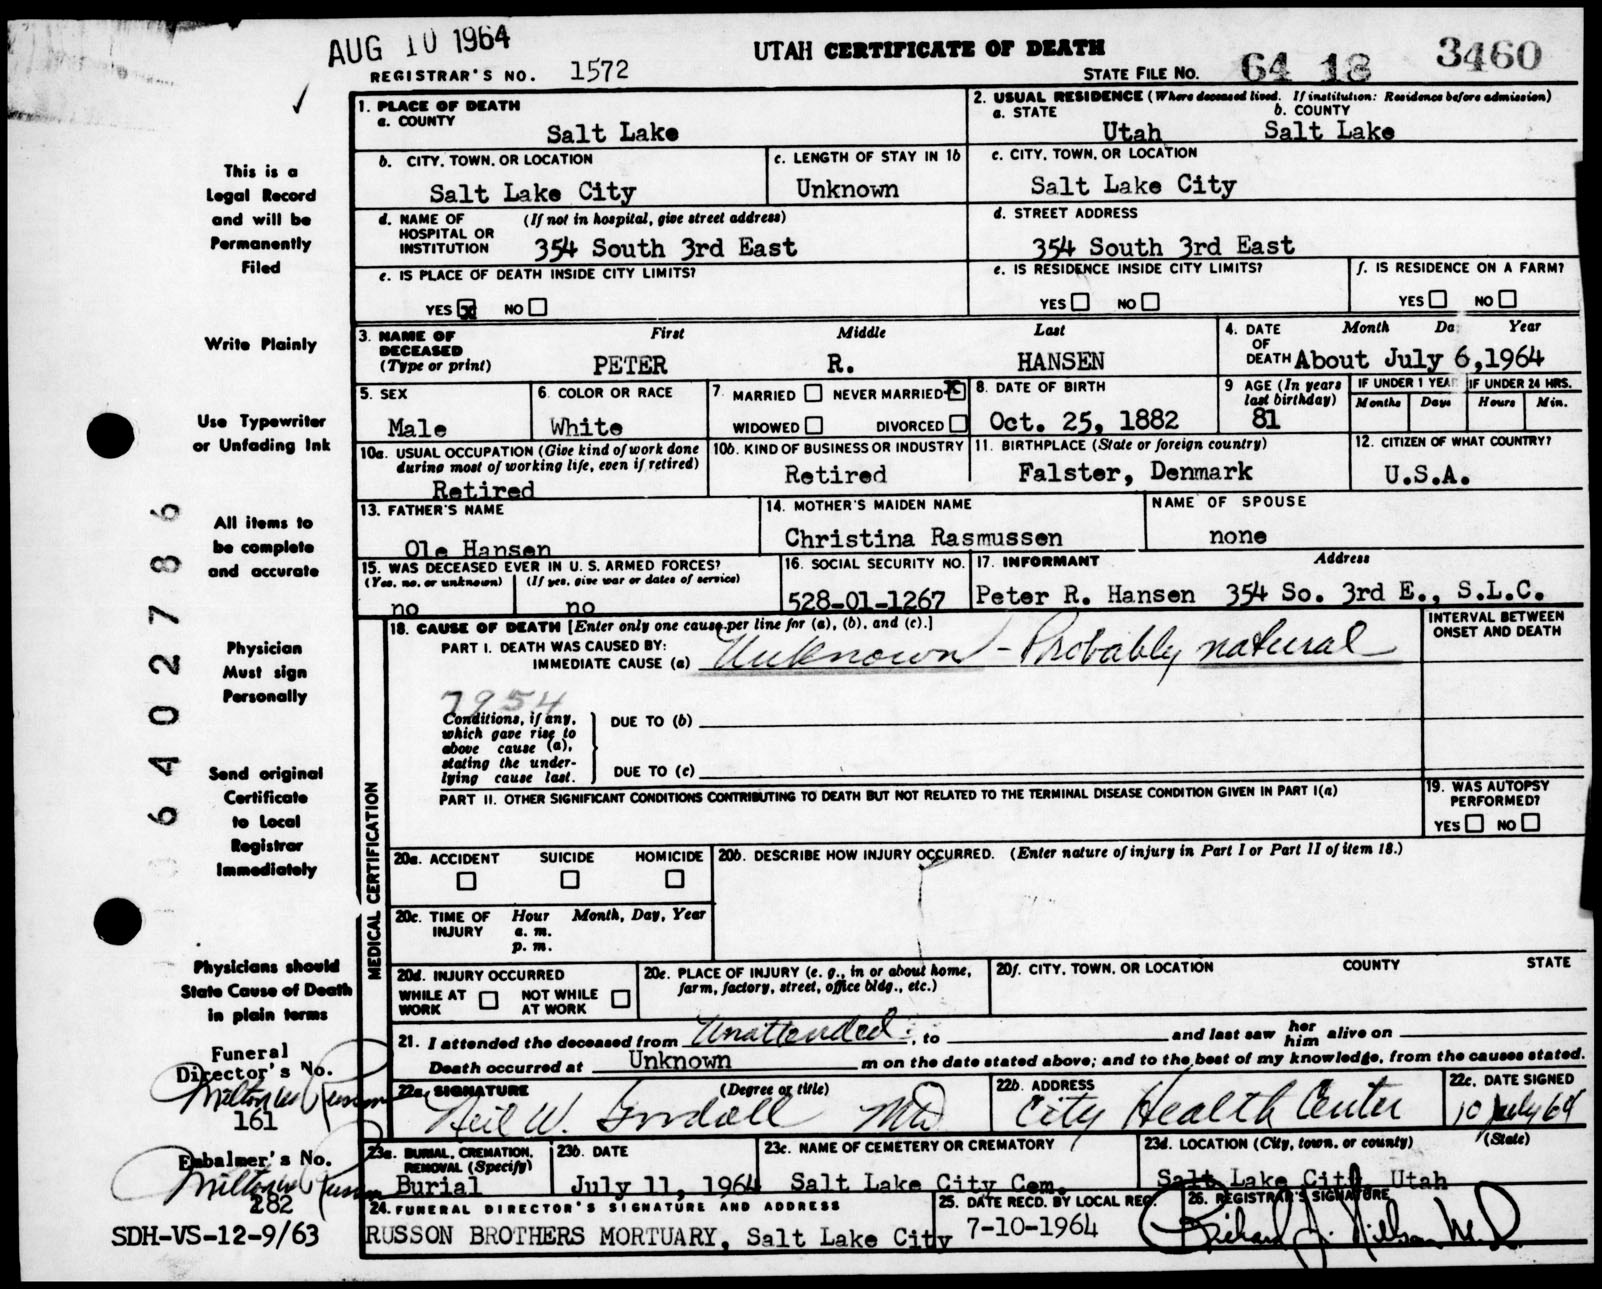 AUG 10 1964
UTAH CERTIFICATE OF DEATH
REGISTRAR'S NO. 1572
STATE FILE NO. 64 18 3460
This is a
Legal Record
and will be
Permanently
Filed
Write Plainly
Use Typewriter
or Unfading Ink
All items to
be complete
and accurate
Physician
Must sign
Personally
Send original
Certificate
to Local
Registrar
Immediately
Physicians should
State Cause of Death
in plain terms
Funeral
Director's No.
161
Embalmer's No.
282
SDH-VS-12-9/63
6402786
1. PLACE OF DEATH
a. COUNTY
Salt Lake
2. USUAL RESIDENCE (Where deceased lived. If institution: Residence before admission)
a. STATE b. COUNTY
Utah Salt Lake
b. CITY, TOWN, OR LOCATION
Salt Lake City
c. LENGTH OF STAY IN 1b
Unknown
c. CITY, TOWN, OR LOCATION
Salt Lake City
d. NAME OF HOSPITAL OR INSTITUTION (If not in hospital, give street address)
354 South 3rd East
d. STREET ADDRESS
354 South 3rd East
e. IS PLACE OF DEATH INSIDE CITY LIMITS?
YES X NO
e. IS RESIDENCE INSIDE CITY LIMITS?
YES NO
f. IS RESIDENCE ON A FARM?
YES NO
3. NAME OF DECEASED (Type or print)
First Middle Last
PETER R. HANSEN
4. DATE OF DEATH Month Da Year
About July 6,1964
5. SEX
Male
6. COLOR OR RACE
White
7. MARRIED NEVER MARRIED X
WIDOWED DIVORCED
8. DATE OF BIRTH
Oct. 25, 1882
9 AGE (In years last birthday)
81
IF UNDER 1 YEAR
Months Days
IF UNDER 24 HRS.
Hours Min.
10a. USUAL OCCUPATION (Give kind of work done during most of working life, even if retired)
Retired
10b. KIND OF BUSINESS OR INDUSTRY
Retired
11. BIRTHPLACE (State or foreign country)
Falster, Denmark
12. CITIZEN OF WHAT COUNTRY?
U.S.A.
13. FATHER'S NAME
Ole Hansen
14. MOTHER'S MAIDEN NAME
Christina Rasmussen
NAME OF SPOUSE
none
15. WAS DECEASED EVER IN U. S. ARMED FORCES?
(Yes, no, or unknown) (If yes, give war or dates of service)
no no
16. SOCIAL SECURITY NO.
528-01-1267
17. INFORMANT Address
Peter R. Hansen 354 So. 3rd E., S.L.C.
MEDICAL CERTIFICATION
18. CAUSE OF DEATH [Enter only one cause per line for (a), (b), and (c).]
PART I. DEATH WAS CAUSED BY:
IMMEDIATE CAUSE (a) Unknown - Probably natural
INTERVAL BETWEEN
ONSET AND DEATH
7954
Conditions, if any,
which gave rise to
above cause (a),
stating the under-
lying cause last.
DUE TO (b)
DUE TO (c)
PART II. OTHER SIGNIFICANT CONDITIONS CONTRIBUTING TO DEATH BUT NOT RELATED TO THE TERMINAL DISEASE CONDITION GIVEN IN PART I(a)
19. WAS AUTOPSY
PERFORMED?
YES NO
20a. ACCIDENT SUICIDE HOMICIDE
20b. DESCRIBE HOW INJURY OCCURRED. (Enter nature of injury in Part I or Part II of item 18.)
20c. TIME OF INJURY
Hour Month, Day, Year
a. m.
p. m.
20d. INJURY OCCURRED
WHILE AT WORK NOT WHILE AT WORK
20e. PLACE OF INJURY (e. g., in or about home, farm, factory, street, office bldg., etc.)
20f. CITY, TOWN, OR LOCATION COUNTY STATE
21. I attended the deceased from Unattended, to and last saw her him alive on
Death occurred at Unknown m on the date stated above; and to the best of my knowledge, from the causes stated.
22a. SIGNATURE (Degree or title)
Neil W. MD
22b. ADDRESS
City Health Center
22c. DATE SIGNED
10 July 64
23a. BURIAL, CREMATION, REMOVAL (Specify)
Burial
23b. DATE
July 11, 1964
23c. NAME OF CEMETERY OR CREMATORY
Salt Lake City Cem.
23d. LOCATION (City, town, or county) (State)
Salt Lake City, Utah
24. FUNERAL DIRECTOR'S SIGNATURE AND ADDRESS
RUSSON BROTHERS MORTUARY, Salt Lake City
25. DATE RECD. BY LOCAL REG.
7-10-1964
26. REGISTRAR'S SIGNATURE
Richard J. Nilson M.D.